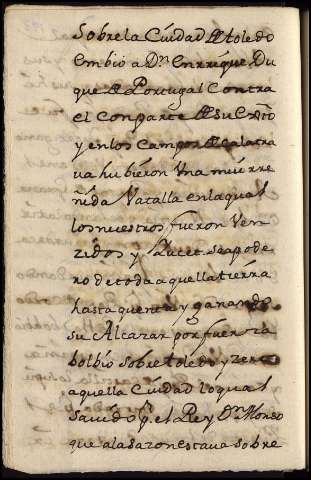 Sobre la Ciudad de toledo
embio a Dn. Enrrique Du
que de Portugal contra
el con parte de su exto
y en los Campos de Calatra
va hubieron Una mui rre
ñida Vatalla en laqual
los nuestros fueron Ven
zidos y Yucef se apode
ro de toda aquella tierra
hasta quenca y ganando
su Alcazar por fuerza
bolbio sobre toledo y zerco
aquella Ciudad lo qual
Savido q. el Rey Dn. Alonso
que ala Sazon estava sobre